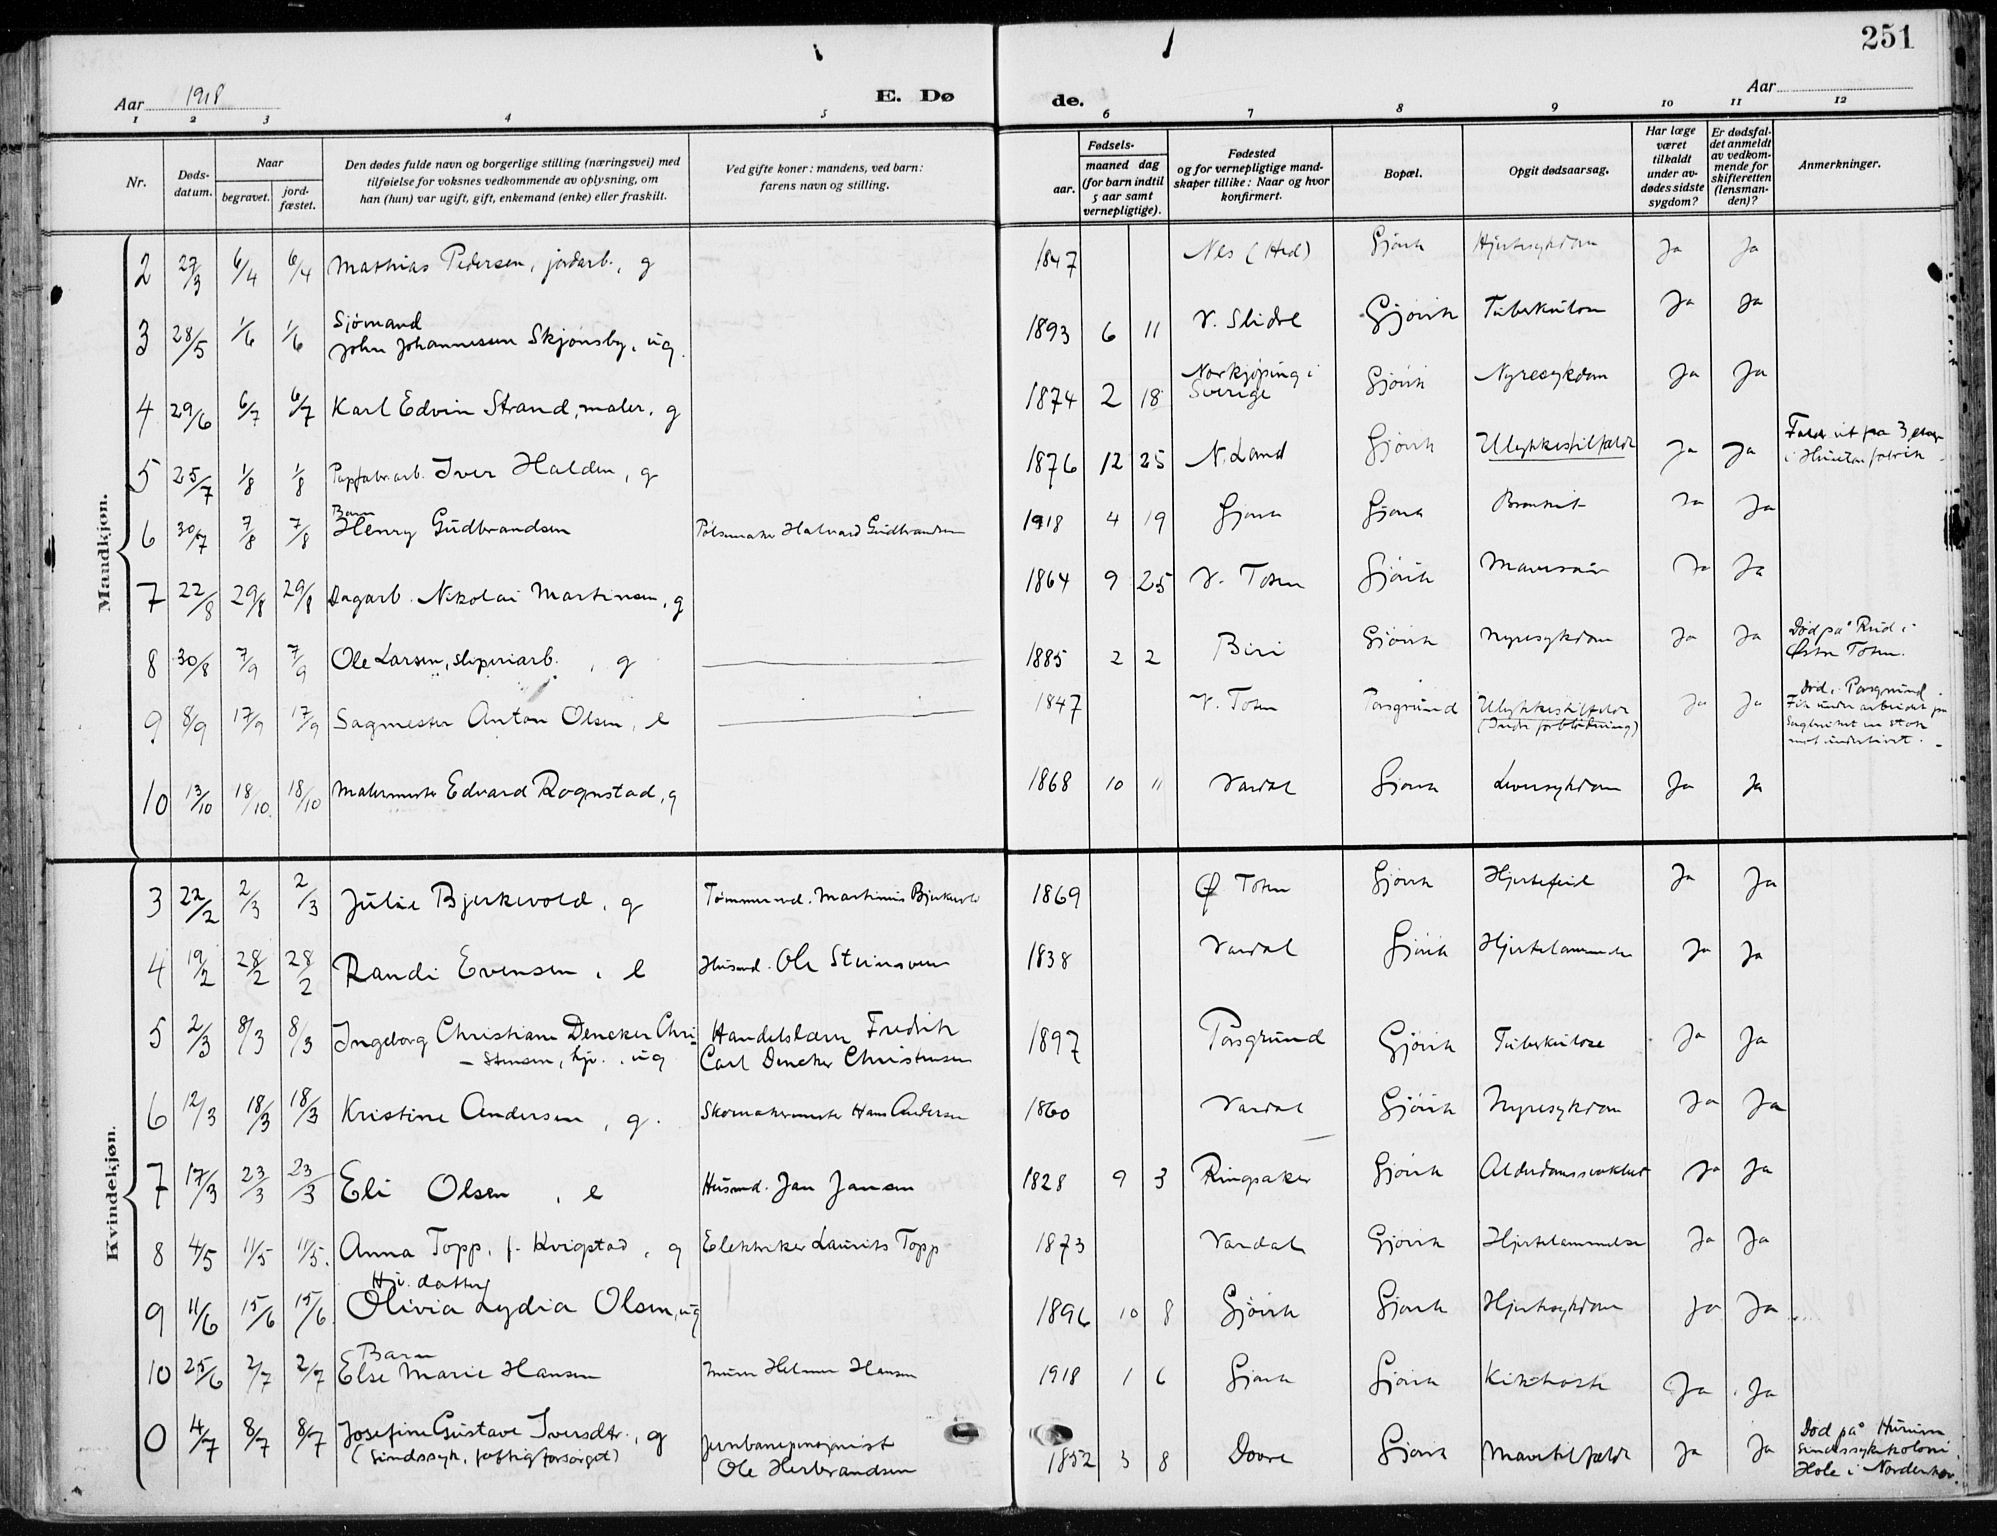 251
Aar 1918 E. Døde. Aar
1 2 3 4 5 6 7 8 9 10 11 12
Nr. Døds-datum. Naar begravet. jord-fæstet. Den dødes fulde navn og borgerlige stilling (næringsvei) med tilføielse for voksnes vedkommende av oplysning, om han (hun) var ugift, gift, enkemand (enke) eller fraskilt. Ved gifte koner: mandens, ved barn: farens navn og stilling. Fødsels- aar. maaned dag (for barn indtil 5 aar samt vernepligtige). Fødested og for vernepligtige mandskaper tillike: Naar og hvor konfirmert. Bopæl. Opgit dødsaarsag. Har læge været tilkaldt under avdødes sidste sygdom? Er dødsfaldet anmeldt av vedkommende for skifteretten (lensmanden)? Anmerkninger.
Mandkjøn.
2 27/3 6/4 6/4 Mathias Pedersen, jordarb., g 1847 Nes (Hed) Gjøvik Hjertesykdom Ja Ja
3 28/5 1/6 1/6 Sjømand
John Johannessen Skjønsby, ug. 1893 6 11 V. Slidre Gjøvik Tuberkulose Ja Ja
4 29/6 6/7 6/7 Karl Edvin Strand, maler, g 1874 2 18 Norkjøping i
Sverige Gjøvik Nyresykdom Ja Ja
5 25/7 1/8 1/8 Papfabr.arb. Iver Halden, g 1876 12 25 N. Land Gjøvik Ulykkestilfælde Ja Ja Faldt ut fra 3 etage
i Hunton fabrik
6 30/7 7/8 7/8 Barn
Henry Gudbrandsen Pølsemaker Halvard Gudbrandsen 1918 4 19 Gjøvik Gjøvik Bronkit Ja Ja
7 22/8 29/8 29/8 Dagarb. Nikolai Martinsen, g 1864 9 25 V. Toten Gjøvik Mavesaar Ja Ja
8 30/8 7/9 7/9 Ole Larsen, sliperiarb., g 1885 2 2 Biri Gjøvik Nyresykdom Ja Ja Død på Rud i
Østre Toten.
9 8/9 17/9 17/9 Sagmester Anton Olsen, e 1847 V. Toten Porsgrund Ulykkestilfælde
(Indre forblødning) Ja Ja Død i Porsgrund
Fik under arbeidet på
Sagbruket en stok
mot underlivet.
10 13/10 18/10 18/10 Malermester Edvard Rognstad, g 1868 10 11 Vardal Gjøvik Leversykdom Ja Ja
Kvindekjøn.
3 22/2 2/3 2/3 Julie Bjerkevold, g Tømmermd. Martinius Bjerkevold 1869 Ø Toten Gjøvik Hjertefeil Ja Ja
4 19/2 28/2 28/2 Randi Evensen, e Husmd. Ole Steinsveen 1838 Vardal Gjøvik Hjertelammelse Ja Ja
5 2/3 8/3 8/3 Ingeborg Christiane Dencker Chri-
stensen, hjv., ug Handelslærer Fredrik
Carl Dencker Christensen 1897 Porsgrund Gjøvik Tuberkulose Ja Ja
6 12/3 18/3 18/3 Kristine Andersen, g. Skomakermester Hans Andersen 1860 Vardal Gjøvik Nyresykdom Ja Ja
7 17/3 23/3 23/3 Eli Olsen, e Husmd. Jan Jansen 1828 9 3 Ringsaker Gjøvik Alderdomssvakhet Ja Ja
8 4/5 11/5 11/5. Anna Topp, f. Kvigstad, g Elektriker Laurits Topp 1873 Vardal Gjøvik Hjertelammelse Ja Ja
9 11/6 15/6 15/6 Hjv. datter
Olivia Lydia Olsen, ug 1896 10 8 Gjøvik Gjøvik Hjertesykdom Ja Ja
10 25/6 2/7 2/7 Barn
Else Marie Hansen Murer Helmer Hansen 1918 1 6 Gjøvik Gjøvik Kikhoste Ja Ja
0 4/7 8/7 8/7 Josefine Gustave Iversdtr., g
(Sindssyk, fattigforsørget) Jernbanepensjonist
Ole Herbrandsen 1852 3 8 Dovre Gjøvik Mavetilfælde Ja Ja Død på
Sindssykekoloni
Hole i Norderhov.